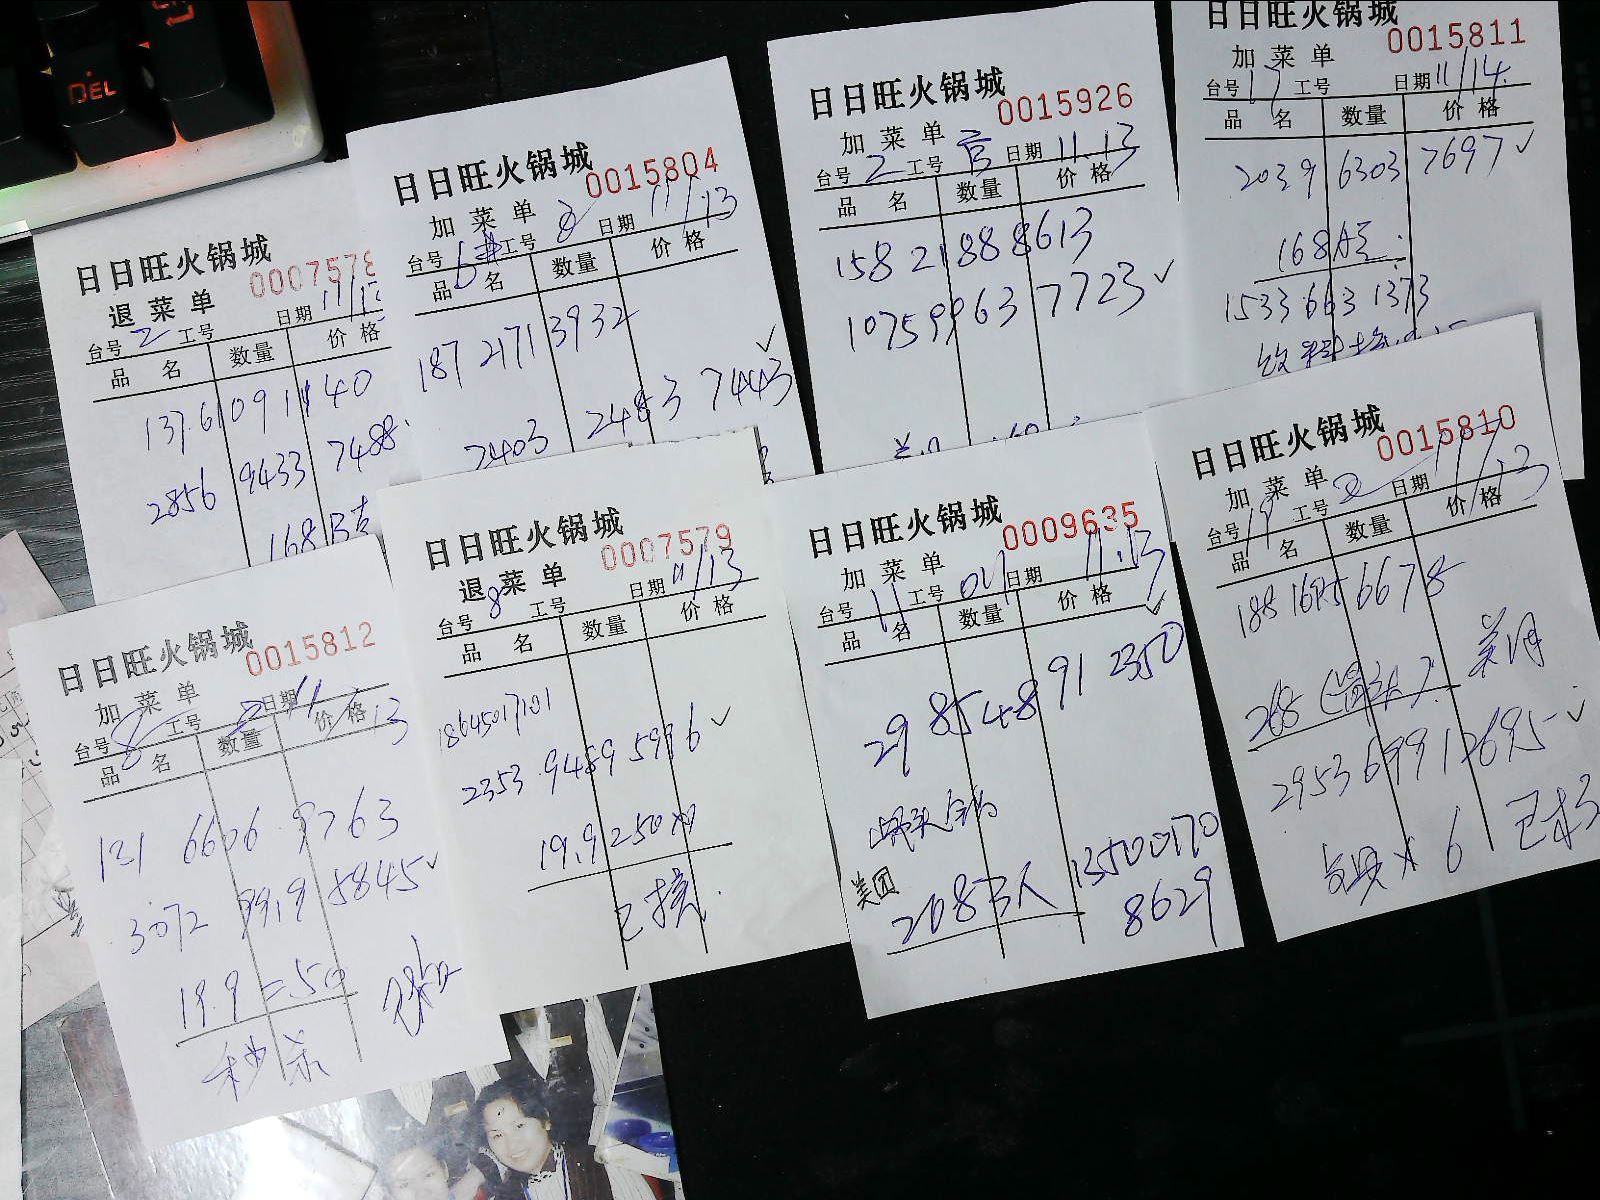 DEL
日日旺火锅城
0007578
退菜单
台号 2 工号 日期 11/13
品名 数量 价格
137.6109 1140
2856 9433 7488
168
日日旺火锅城
0015804
加菜单
台号 6# 工号 日期 11/13
品名 数量 价格
187 2171 3932
2403 2483 7443 ✓
日日旺火锅城
0015926
加菜单
台号 2 工号 日期 11.13
品名 数量 价格
158 2188 8613
1075 9963 7723 ✓
日日旺火锅城
0015811
加菜单
台号 17 工号 日期 11/14.
品名 数量 价格
2039 6303 7697 ✓
168
1533 663 1373
日日旺火锅城
0015812
加菜单
台号 8 工号 2 日期 11/13
品名 数量 价格
121 6606 9763
3072 99,9 5845 ✓
19.9 = 50
秒杀
日日旺火锅城
0007579
退菜单
台号 8 工号 日期 11/13
品名 数量 价格
18645017101
2353 9489 5996 ✓
19.9 250
日日旺火锅城
0009635
加菜单
台号 11 工号 04 日期 11.13
品名 数量 价格 ✓
29 8548 91 2350
美团
268 13500170
8629
日日旺火锅城
0015810
加菜单
台号 19 工号 2 日期 11/13
品名 数量 价格
188 1675 6678
268
2953 6991 2695 ✓
x 6